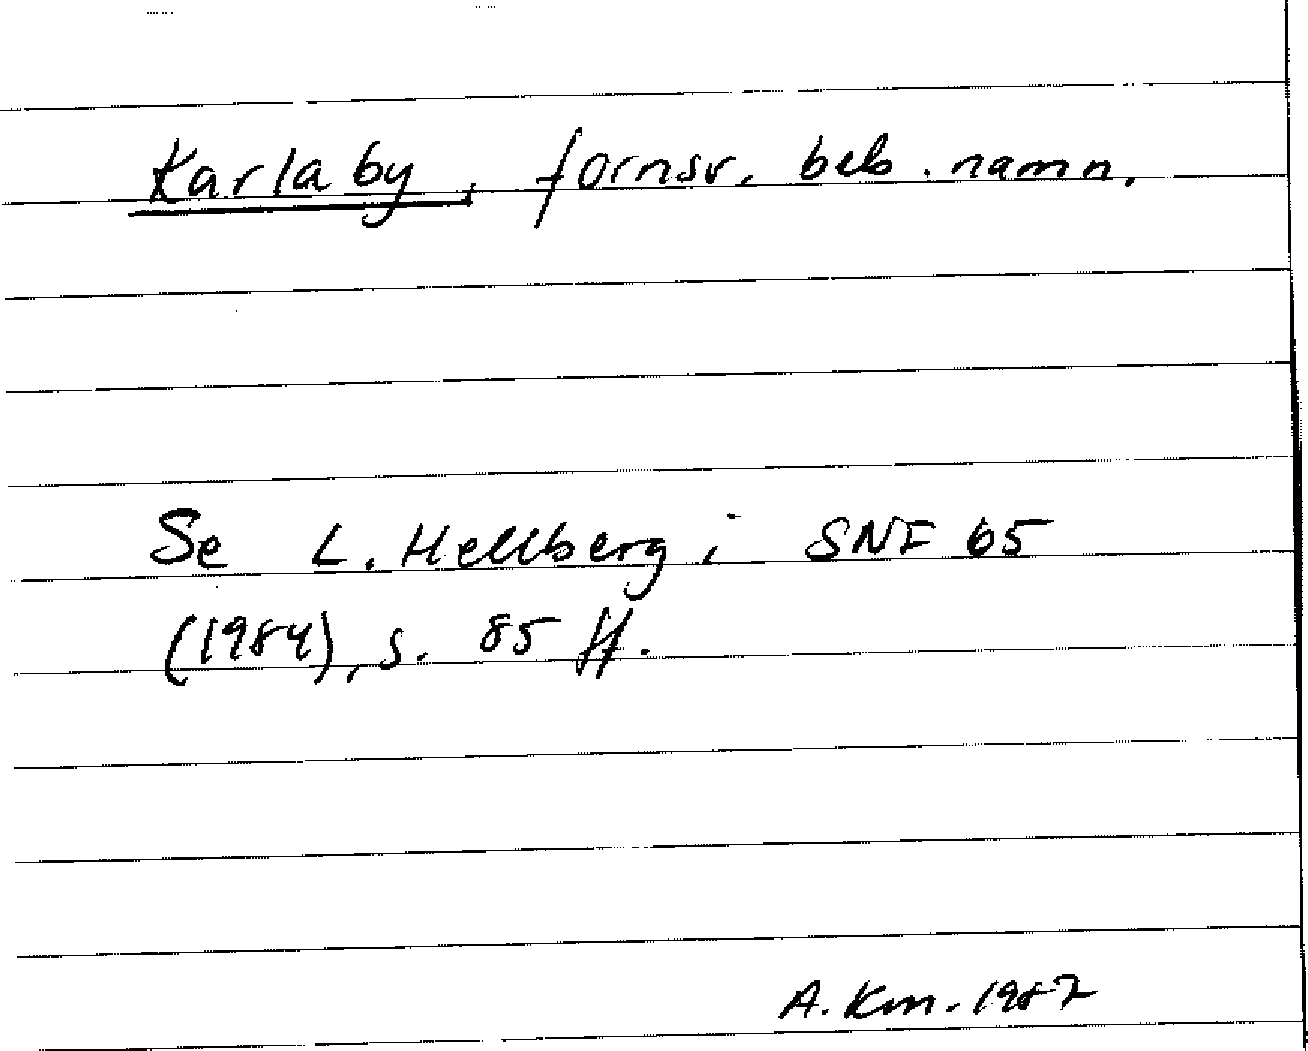 Karlaby, fornsv. beb. namn.
Se L. Hellberg i SNF 65
(1984), s. 85 ff.
A. Km. 1987